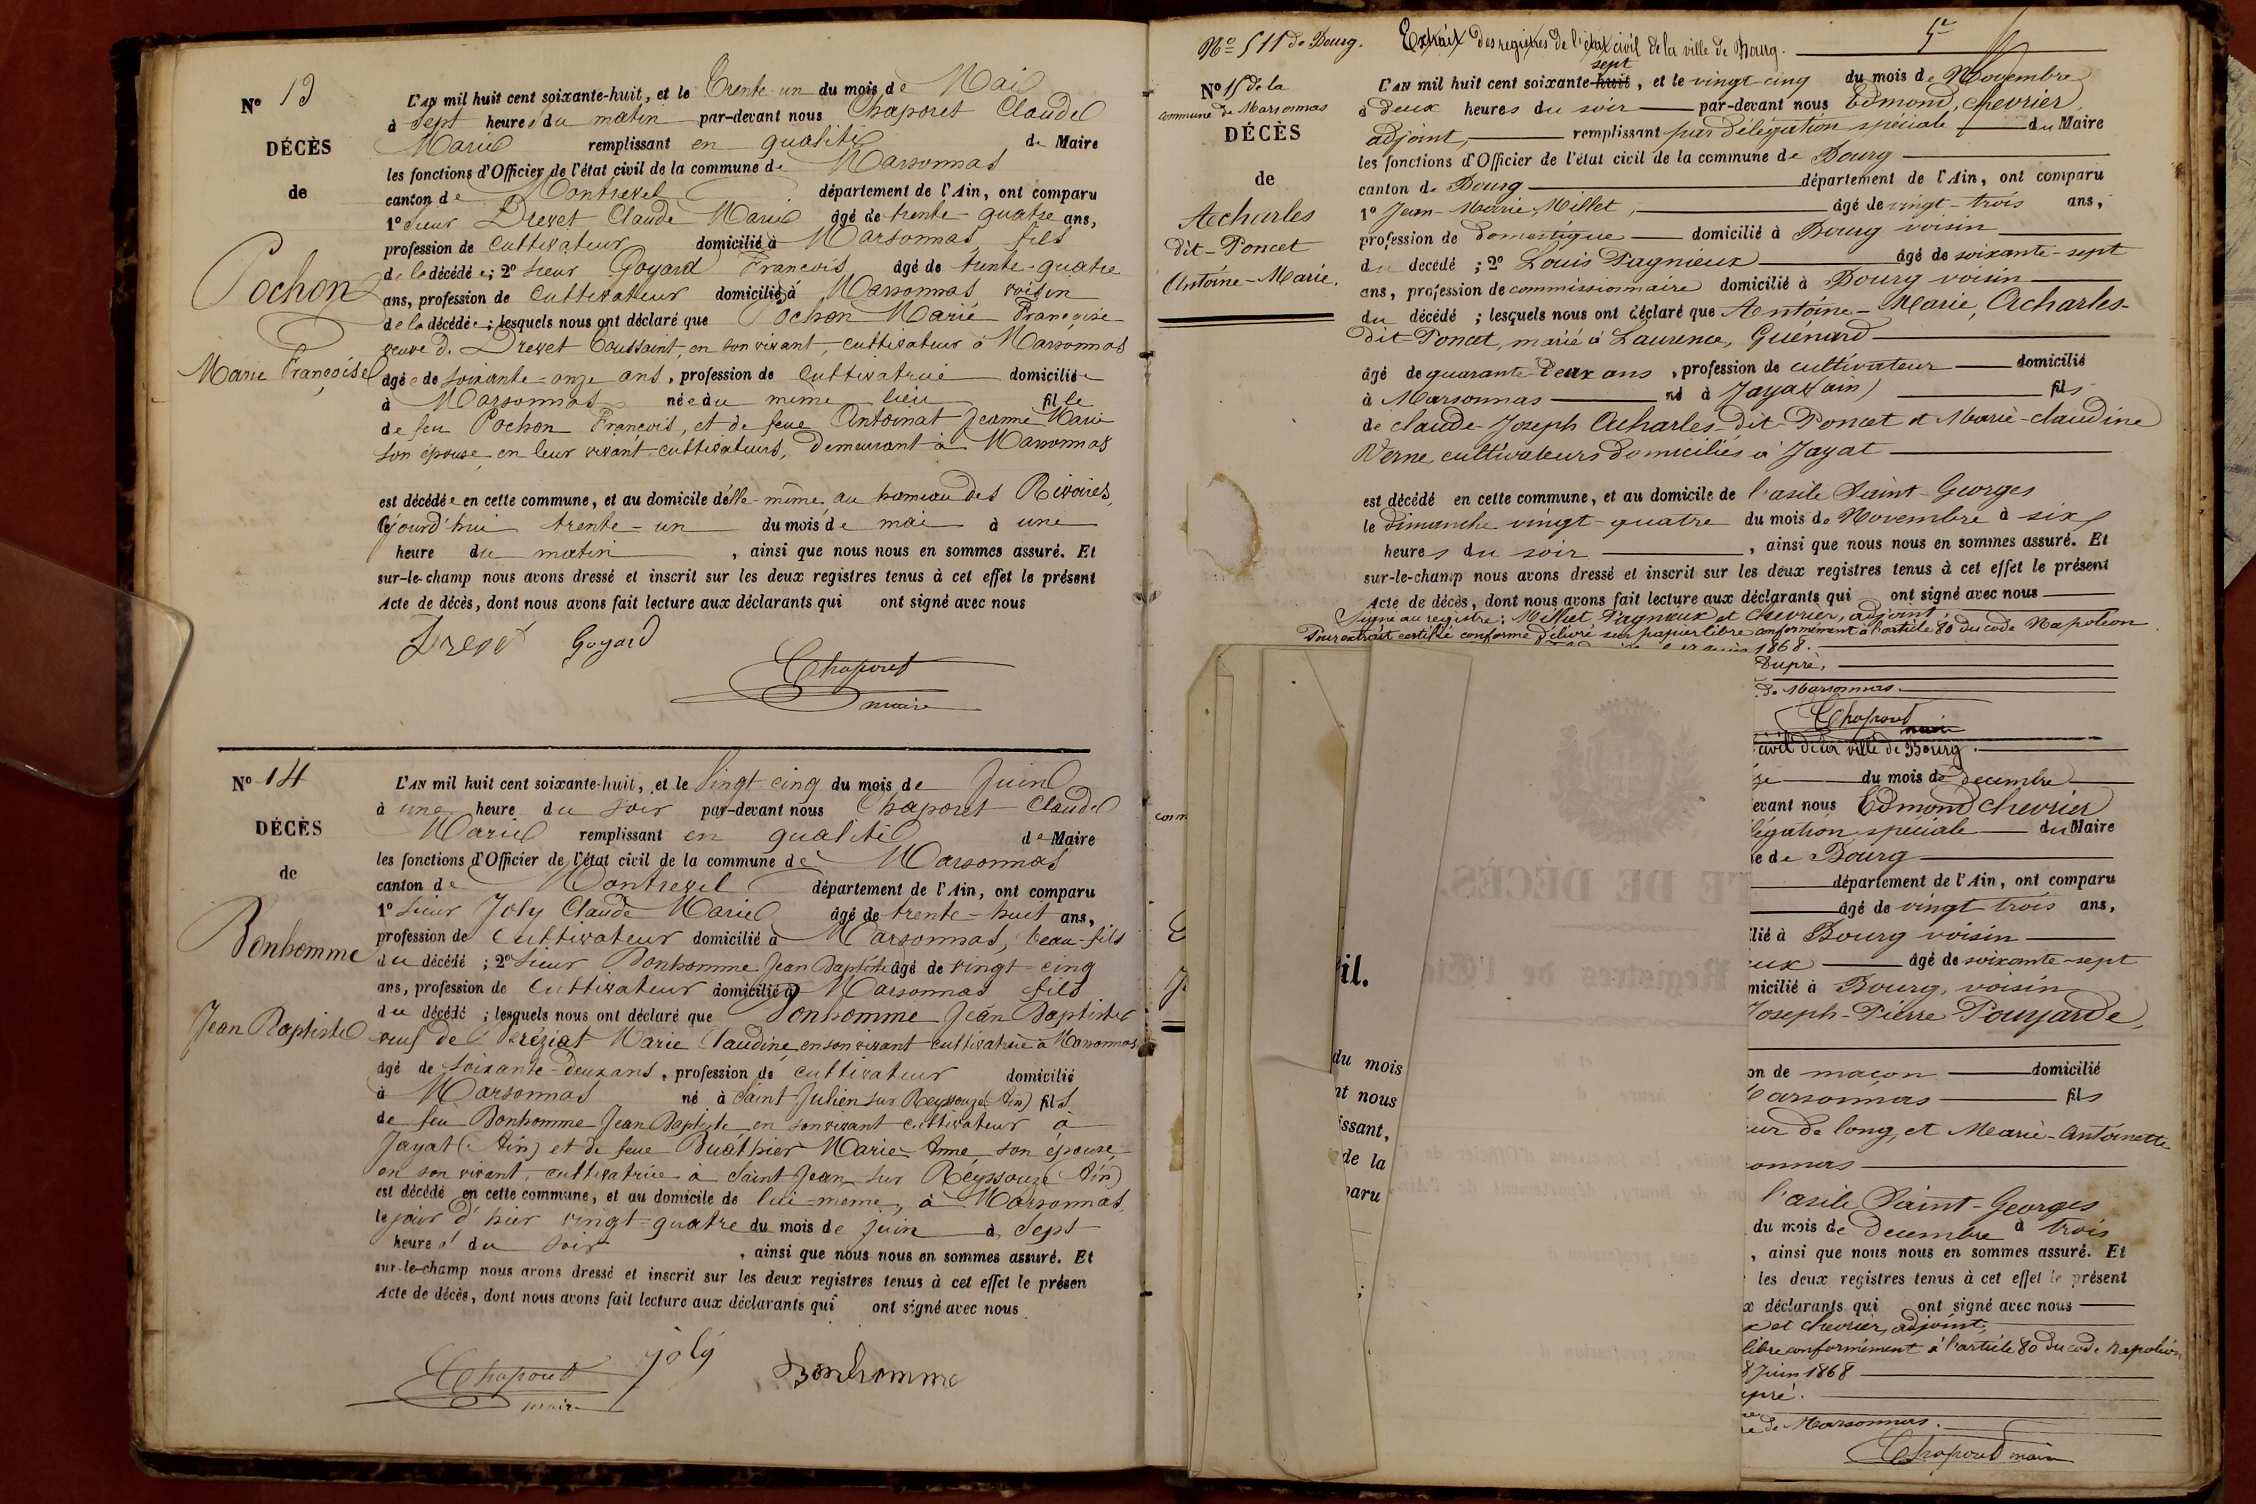 Nº 13
DÉCÈS
de
Pochon
Marie Françoise
L'AN mil huit cent soixante-huit, et le Trente-un du mois de Mai
à sept heures du matin par-devant nous Chaporet Claude
Marie remplissant en qualité de Maire
les fonctions d'Officier de l'état civil de la commune de Marsonnas
canton de Montrevel département de l'Ain, ont comparu
1º sieur Drevet Claude Marie âgé de trente-quatre ans,
profession de cultivateur domicilié à Marsonnas, fils
de la décédée; 2º sieur Goyard François âgé de trente-quatre
ans, profession de cultivateur domicilié à Marsonnas voisin
de la décédée; lesquels nous ont déclaré que Pochon Marie Françoise
veuve de Drevet Toussaint, en son vivant, cultivateur à Marsonnas
âgée de soixante-onze ans, profession de cultivatrice domiciliée
à Marsonnas née au même lieu fille
de feu Pochon François, et de feue Antoinat Jeanne Marie
son épouse en leur vivant cultivateurs, demeurant à Marsonnas
est décédée en cette commune, et au domicile d'elle-même, au hameau des Rivoires,
ce jourd'hui trente-un du mois de mai à une
heure du matin, ainsi que nous nous en sommes assuré. Et
sur-le-champ nous avons dressé et inscrit sur les deux registres tenus à cet effet le présent
Acte de décès, dont nous avons fait lecture aux déclarants qui ont signé avec nous
Drevet Goyard
Chaporet
maire
Nº 14
DÉCÈS
de
Bonhomme
Jean Baptiste
L'AN mil huit cent soixante-huit, et le Vingt cinq du mois de Juin
à une heure du soir par-devant nous Chaporet Claude
Marie remplissant en qualité de Maire
les fonctions d'Officier de l'état civil de la commune de Marsonnas
canton de Montrevel département de l'Ain, ont comparu
1º sieur Joly Claude Marie âgé de trente-huit ans,
profession de cultivateur domicilié à Marsonnas, beau-fils
du décédé; 2º sieur Bonhomme Jean Baptiste âgé de vingt-cinq
ans, profession de cultivateur domicilié à Marsonnas fils
du décédé; lesquels nous ont déclaré que Bonhomme Jean Baptiste
veuf de Préziat Marie Claudine en son vivant cultivatrice à Marsonnas
âgé de soixante-deux ans, profession de cultivateur domicilié
à Marsonnas né à Saint Julien sur Reyssouze (Ain) fils
de feu Bonhomme Jean Baptiste en son vivant cultivateur à
Jayat (Ain) et de feue Buathier Marie Anne son épouse,
en son vivant, cultivatrice à Saint Jean sur Reyssouze (Ain)
est décédé en cette commune, et au domicile de lui-même, à Marsonnas,
le jour d'hier vingt-quatre du mois de juin à sept
heures du soir, ainsi que nous nous en sommes assuré. Et
sur-le-champ nous avons dressé et inscrit sur les deux registres tenus à cet effet le présen
Acte de décès, dont nous avons fait lecture aux déclarants qui ont signé avec nous
Chaporet joly Bonhomme
maire
Nº 511 de Bourg. Extrait des registres de l'état civil de la ville de Bourg.
Nº 15 de la
commune de Marsonnas
DÉCÈS
de
Acharles
dit-Poncet
Antoine-Marie.
L'AN mil huit cent soixante-huit sept, et le vingt-cinq du mois de Novembre
à deux heures du soir par-devant nous Edmond, Chevrier
adjoint, remplissant par délégation spéciale du Maire
les fonctions d'Officier de l'état civil de la commune de Bourg
canton de Bourg département de l'Ain, ont comparu
1º Jean-Marie Millet, âgé de vingt-trois ans,
profession de domestique domicilié à Bourg voisin
du décédé; 2º Louis Pagneux âgé de soixante-sept
ans, profession de commissionnaire domicilié à Bourg voisin
du décédé; lesquels nous ont déclaré que Antoine-Marie, Acharles-
dit-Poncet, marié à Laurence, Guénard
âgé de quarante-deux ans, profession de cultivateur domicilié
à Marsonnas né à Jayat (ain) fils
de Claude-Joseph Acharles-dit-Poncet et Marie-Claudine
Verne, cultivateurs domiciliés à Jayat
est décédé en cette commune, et au domicile de l'asile Saint-Georges
le dimanche vingt-quatre du mois de Novembre à six
heures du soir, ainsi que nous nous en sommes assuré. Et
sur-le-champ nous avons dressé et inscrit sur les deux registres tenus à cet effet le présent
Acte de décès, dont nous avons fait lecture aux déclarants qui ont signé avec nous
Signé au registre: Millet, Pagneux et Chevrier, adjoint.
Pour extrait certifié conforme délivré sur papier libre conformément à l'article 80 du code Napoléon
1868.
Dupré,
de Marsonnas
Chaporet
maire
civil de la ville de Bourg.
du mois de décembre
evant nous Edmond Chevrier
égation spéciale du Maire
e de Bourg
département de l'Ain, ont comparu
âgé de vingt trois ans,
lié à Bourg voisin
eux âgé de soixante-sept
micilié à Bourg, voisin
Joseph-Pierre Poujarde,
on de maçon domicilié
arsonnas fils
ur de long, et Marie-Antoinette
onnas
l'asile Saint-Georges
du mois de Decembre à trois
, ainsi que nous nous en sommes assuré. Et
les deux registres tenus à cet effet le présent
x déclarants qui ont signé avec nous
x et Chevrier, adjoint,
libre conformément à l'article 80 du code Napoléon
8 Juin 1868
upré.
de Marsonnas.
Chaporet maire
il.
du mois
nt nous
issant,
de la
paru
TE DE DÉCÈS.
Registres de l'État